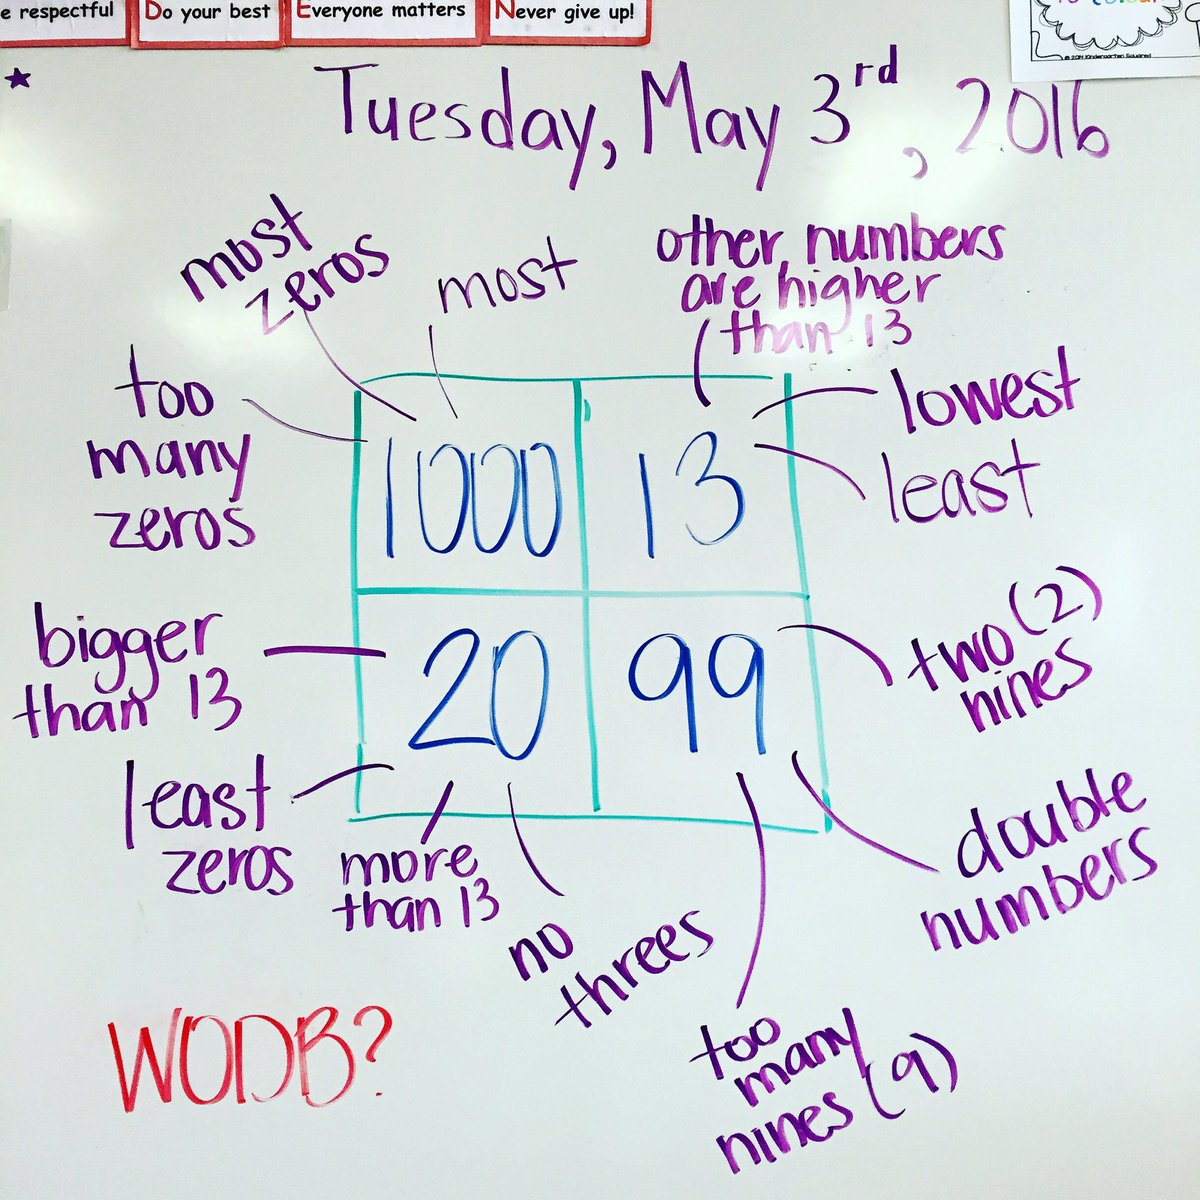 e respectful
Do your best
Everyone matters
Never give up!
© 2014 Kindergarten Squared
Tuesday, May 3rd, 2016
most
zeros
most
other numbers
are higher
than 13
too
many
zeros
lowest
least
1000
13
20
99
bigger
than 13
least
zeros
more
than 13
no
threes
two (2)
nines
double
numbers
too
many
nines (9)
WODB?